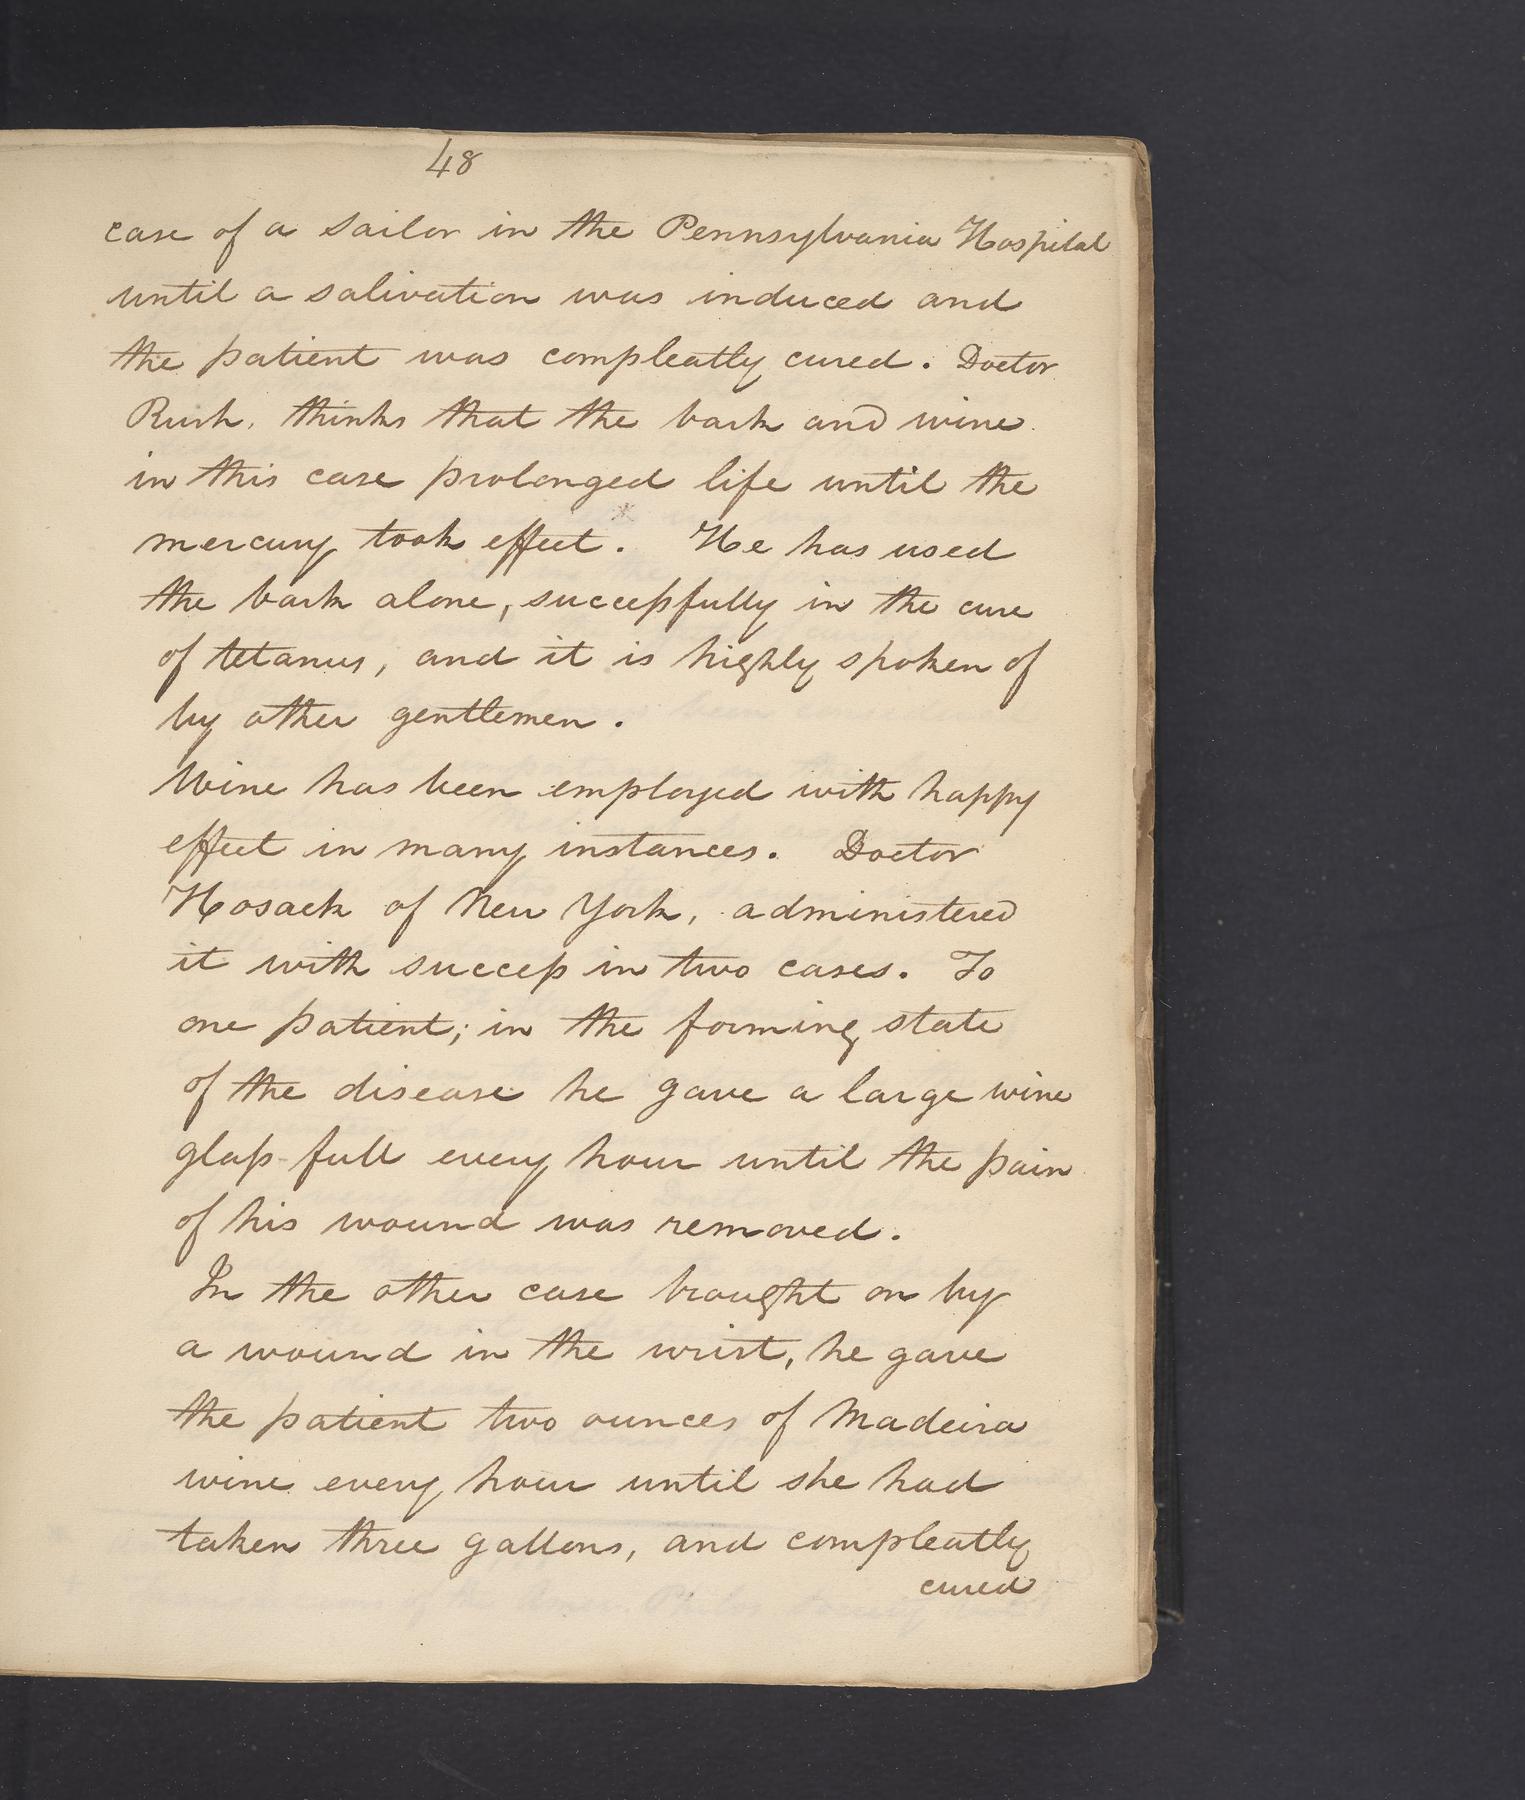 48
case of a sailor in the Pennsylvania Hospital
until a salivation was induced and
the patient was compleatly cured. Doctor
Rush, thinks that the bark and wine
in this case prolonged life until the
mercury took effect. He has used
the bark alone, successfully in the cure
of tetanus, and it is highly spoken of
by other gentlemen.
Wine has been employed with happy
effect in many instances. Doctor
Hosack of New York, administered
it with success in two cases. To
one patient; in the forming state
of the disease he gave a large wine
glass full every hour until the pain
of his wound was removed.
In the other case brought on by
a wound in the wrist, he gave
the patient two ounces of Madeira
wine every hour until she had
taken three gallons, and compleatly
cured